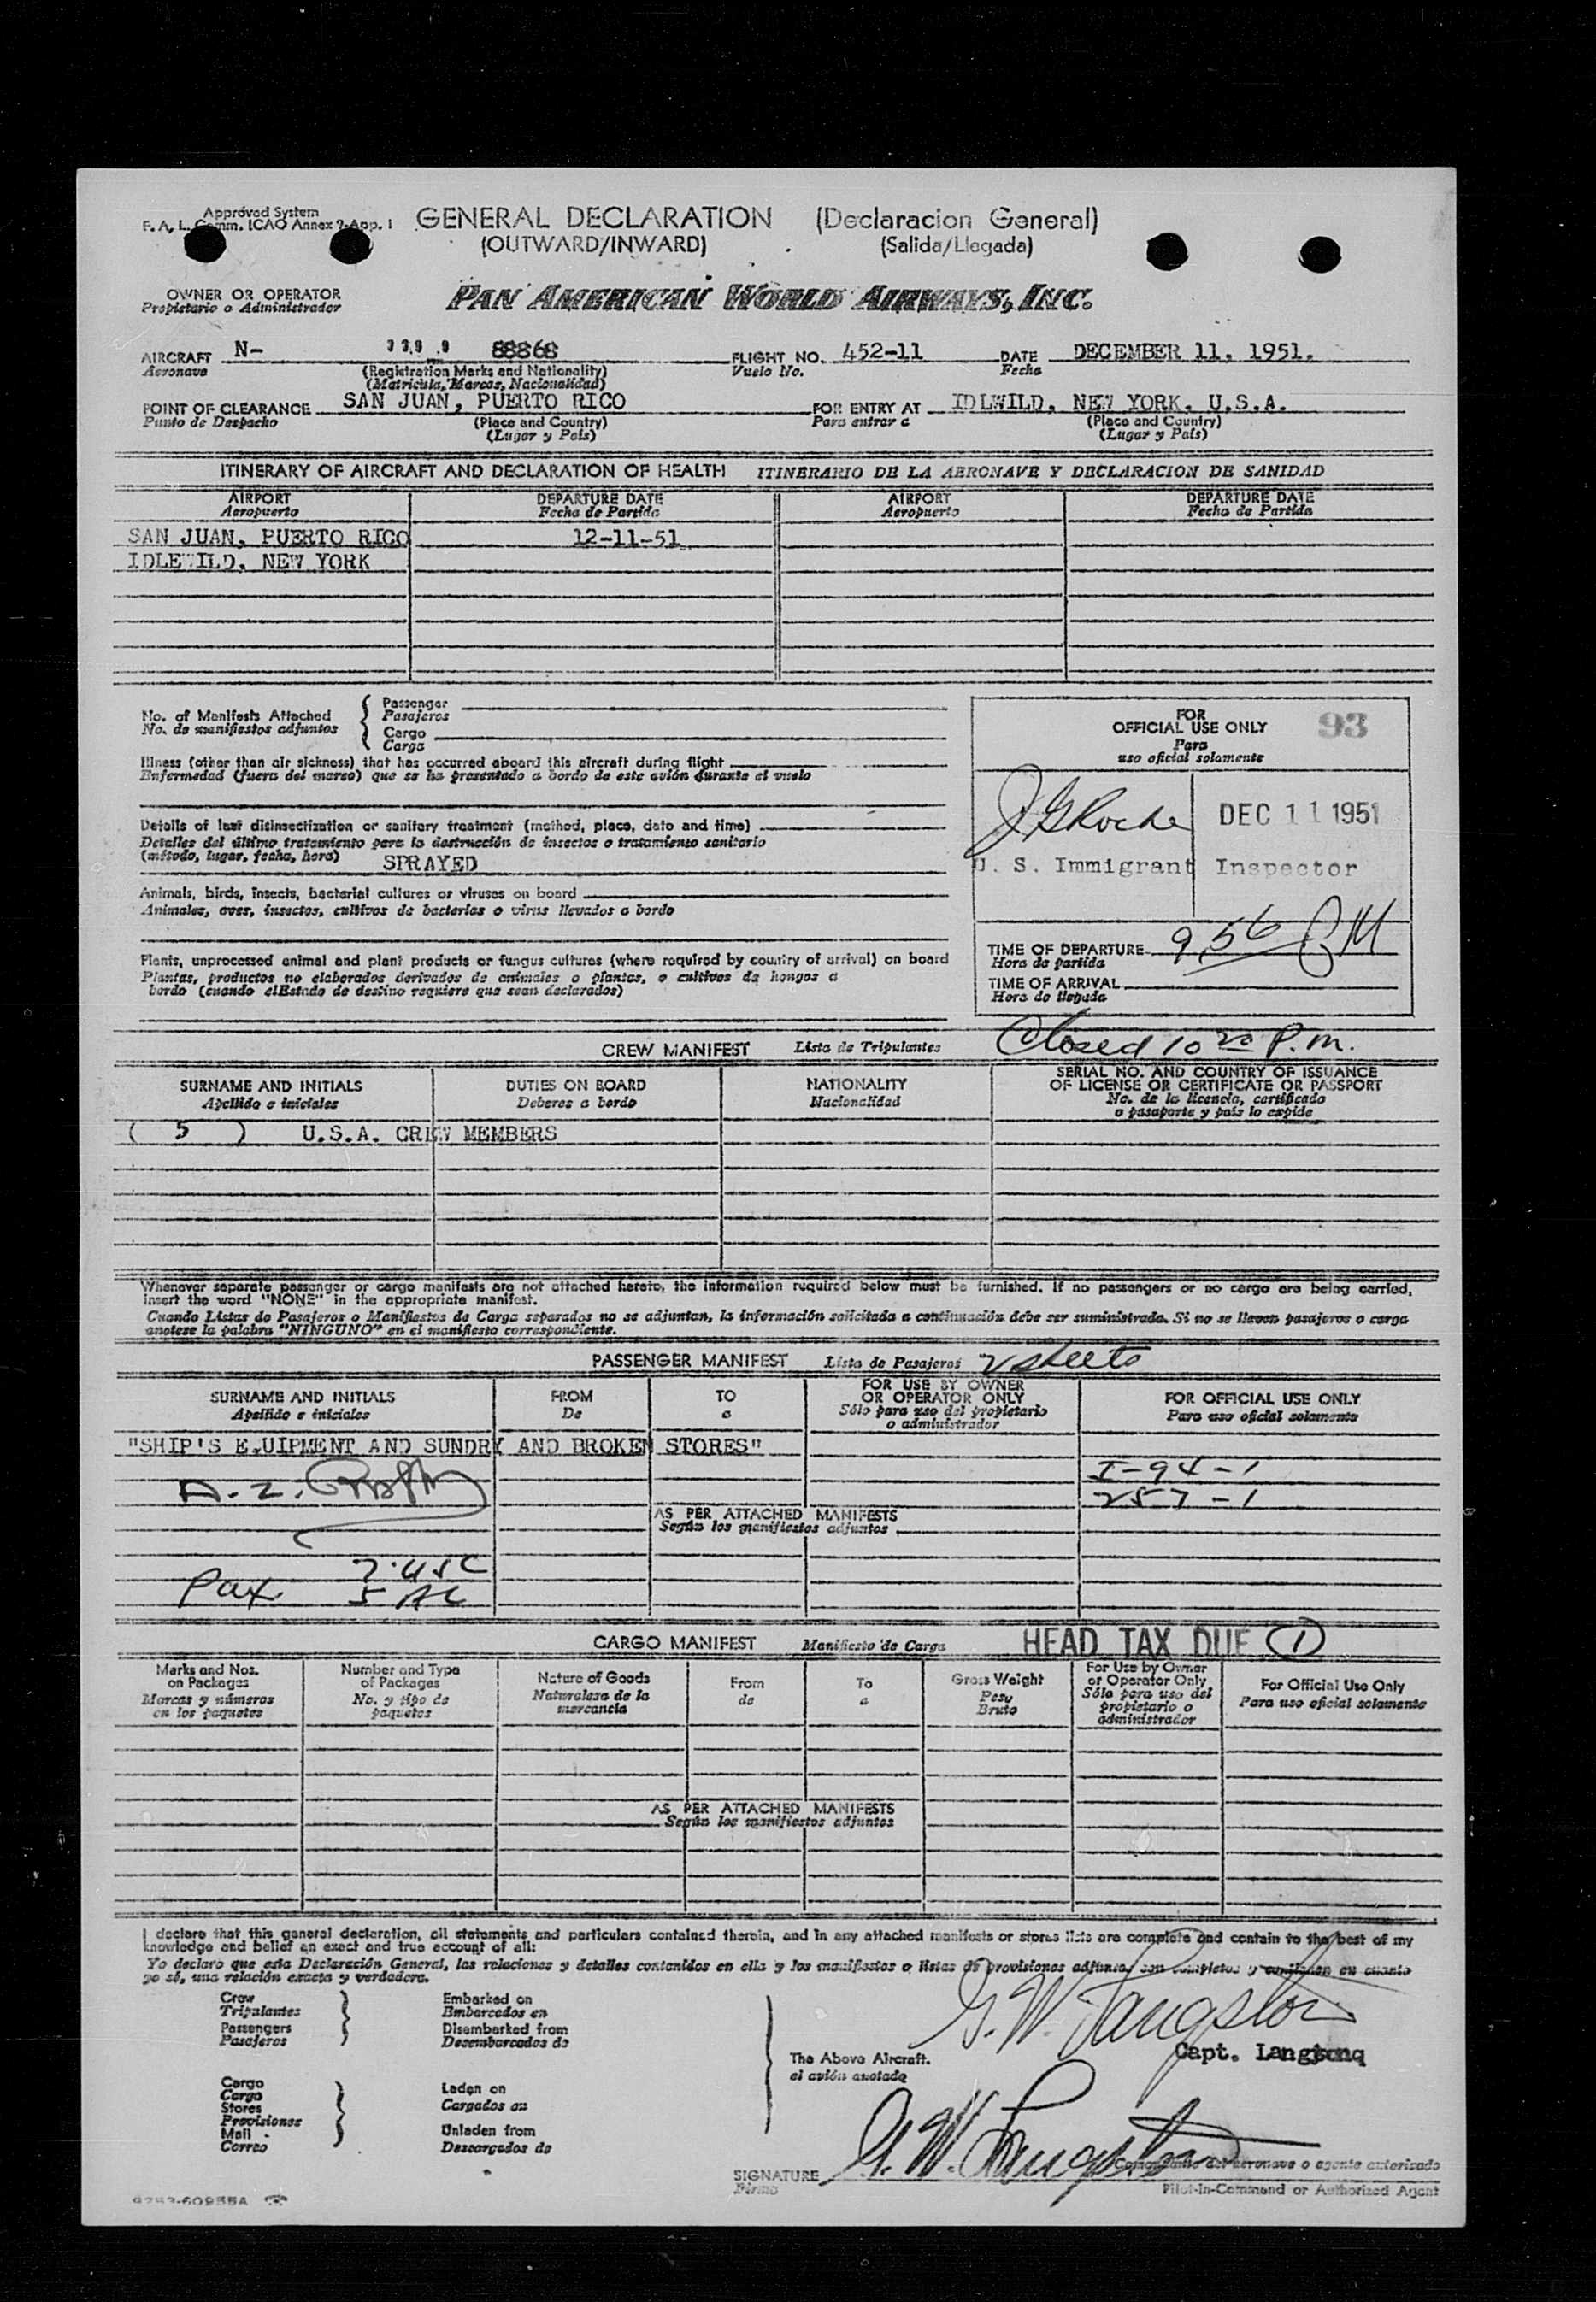 Approved System
F. A. L. Comm. ICAO Annex 9-App. I
GENERAL DECLARATION (Declaracion General)
(OUTWARD/INWARD) (Salida/Llegada)
OWNER OR OPERATOR
Propietario o Administrador
PAN AMERICAN WORLD AIRWAYS, INC.
AIRCRAFT N- 88868 FLIGHT NO. 452-11 DATE DECEMBER 11, 1951.
Aeronave (Registration Marks and Nationality) Vuelo No. Fecha
(Matricula, Marcas, Nacionalidad)
POINT OF CLEARANCE SAN JUAN, PUERTO RICO FOR ENTRY AT IDLWILD, NEW YORK, U.S.A.
Punto de Despacho (Place and Country) Para entrar a (Place and Country)
(Lugar y País) (Lugar y País)
ITINERARY OF AIRCRAFT AND DECLARATION OF HEALTH ITINERARIO DE LA AERONAVE Y DECLARACION DE SANIDAD
AIRPORT DEPARTURE DATE AIRPORT DEPARTURE DATE
Aeropuerto Fecha de Partida Aeropuerto Fecha de Partida
SAN JUAN, PUERTO RICO 12-11-51
IDLEWILD, NEW YORK
No. of Manifests Attached
No. de manifiestos adjuntos
Passenger
Pasajeros
Cargo
Carga
Illness (other than air sickness) that has occurred aboard this aircraft during flight
Enfermedad (fuera del mareo) que se ha presentado a bordo de este avión durante el vuelo
Details of last disinsectization or sanitary treatment (method, place, date and time)
Detalles del último tratamiento para la destrucción de insectos o tratamiento sanitario
(método, lugar, fecha, hora) SPRAYED
Animals, birds, insects, bacterial cultures or viruses on board
Animales, aves, insectos, cultivos de bacterias o virus llevados a bordo
Plants, unprocessed animal and plant products or fungus cultures (where required by country of arrival) on board
Plantas, productos no elaborados derivados de animales o plantas, o cultivos de hongos a
bordo (cuando elEstado de destino requiere que sean declarados)
FOR
OFFICIAL USE ONLY 93
Para
uso oficial solamente
J G Roche DEC 11 1951
U. S. Immigrant Inspector
TIME OF DEPARTURE 9,56 PM
Hora de partida
TIME OF ARRIVAL
Hora de llegada
Closed 10 20 P.M.
CREW MANIFEST Lista de Tripulantes
SURNAME AND INITIALS DUTIES ON BOARD NATIONALITY SERIAL NO. AND COUNTRY OF ISSUANCE
OF LICENSE OR CERTIFICATE OR PASSPORT
Apellido e iniciales Deberes a bordo Nacionalidad No. de la licencia, certificado
o pasaporte y país lo expide
( 5 ) U.S.A. CREW MEMBERS
Whenever separate passenger or cargo manifests are not attached hereto, the information required below must be furnished. If no passengers or no cargo are being carried,
insert the word "NONE" in the appropriate manifest.
Cuando Listas de Pasajeros o Manifiestos de Carga separados no se adjuntan, la información solicitada a continuación debe ser suministrada. Si no se llevan pasajeros o carga
anotese la palabra "NINGUNO" en el manifiesto correspondiente.
PASSENGER MANIFEST Lista de Pasajeros 2 sheets
SURNAME AND INITIALS FROM TO FOR USE BY OWNER
OR OPERATOR ONLY FOR OFFICIAL USE ONLY
Apellido e iniciales De a Sólo para uso del propietario
o administrador Para uso oficial solamente
"SHIP'S E.UIPMENT AND SUNDRY AND BROKEN STORES"
I-94-1
257-1
AS PER ATTACHED MANIFESTS
Según los manifiestos adjuntos
7 USC
Pax 5 AC
CARGO MANIFEST Manifiesto de Carga HEAD TAX DUE 1
Marks and Nos.
on Packages
Marcas y números
en los paquetes
Number and Type
of Packages
No. y tipo de
paquetes
Nature of Goods
Naturaleza de la
mercancia
From
de
To
a
Gross Weight
Peso
Bruto
For Use by Owner
or Operator Only
Sólo para uso del
propietario o
administrador
For Official Use Only
Para uso oficial solamente
AS PER ATTACHED MANIFESTS
Según los manifiestos adjuntos
I declare that this general declaration, all statements and particulars contained therein, and in any attached manifests or stores lists are complete and contain to the best of my
knowledge and belief an exact and true account of all:
Yo declaro que esta Declaración General, las relaciones y detalles contenidos en ella y los manifiestos o listas de provisiones adjuntas, son completos y contienen en cuanto
yo sé, una relación exacta y verdadera.
Crew
Tripulantes
Passengers
Pasajeros
Embarked on
Embarcados en
Disembarked from
Desembarcados de
Cargo
Carga
Stores
Provisiones
Mail
Correo
Laden on
Cargados en
Unladen from
Descargados de
The Above Aircraft.
el avión anotado
G. W. Langston
Capt. Langston
G. W. Langston
SIGNATURE
Firma
Comandante del aeronave o agente autorizado
Pilot-in-Command or Authorized Agent